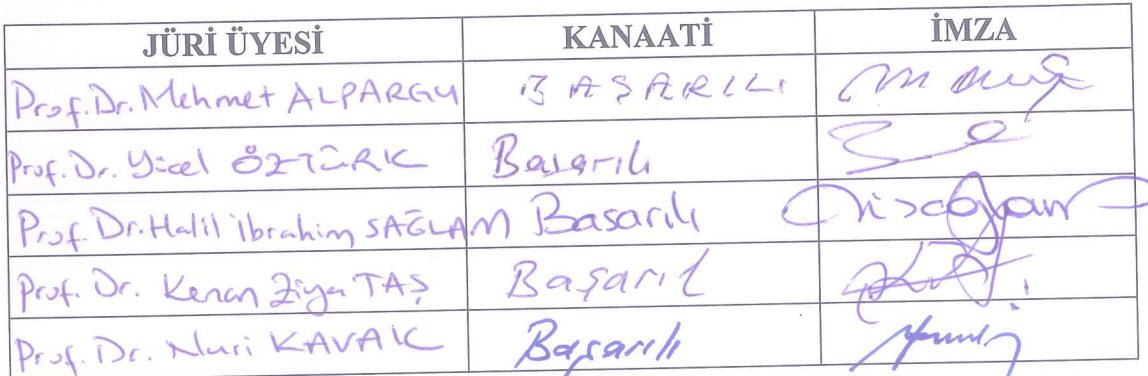 JÜRİ ÜYESİ KANAATİ İMZA
Prof. Dr. Mehmet ALPARGU BAŞARILI
Prof. Dr. Yücel ÖZTÜRK Başarılı
Prof. Dr. Halil İbrahim SAĞLAM Başarılı
Prof. Dr. Kenan Ziya TAŞ Başarıl
Prof. Dr. Nuri KAVAK Başarılı